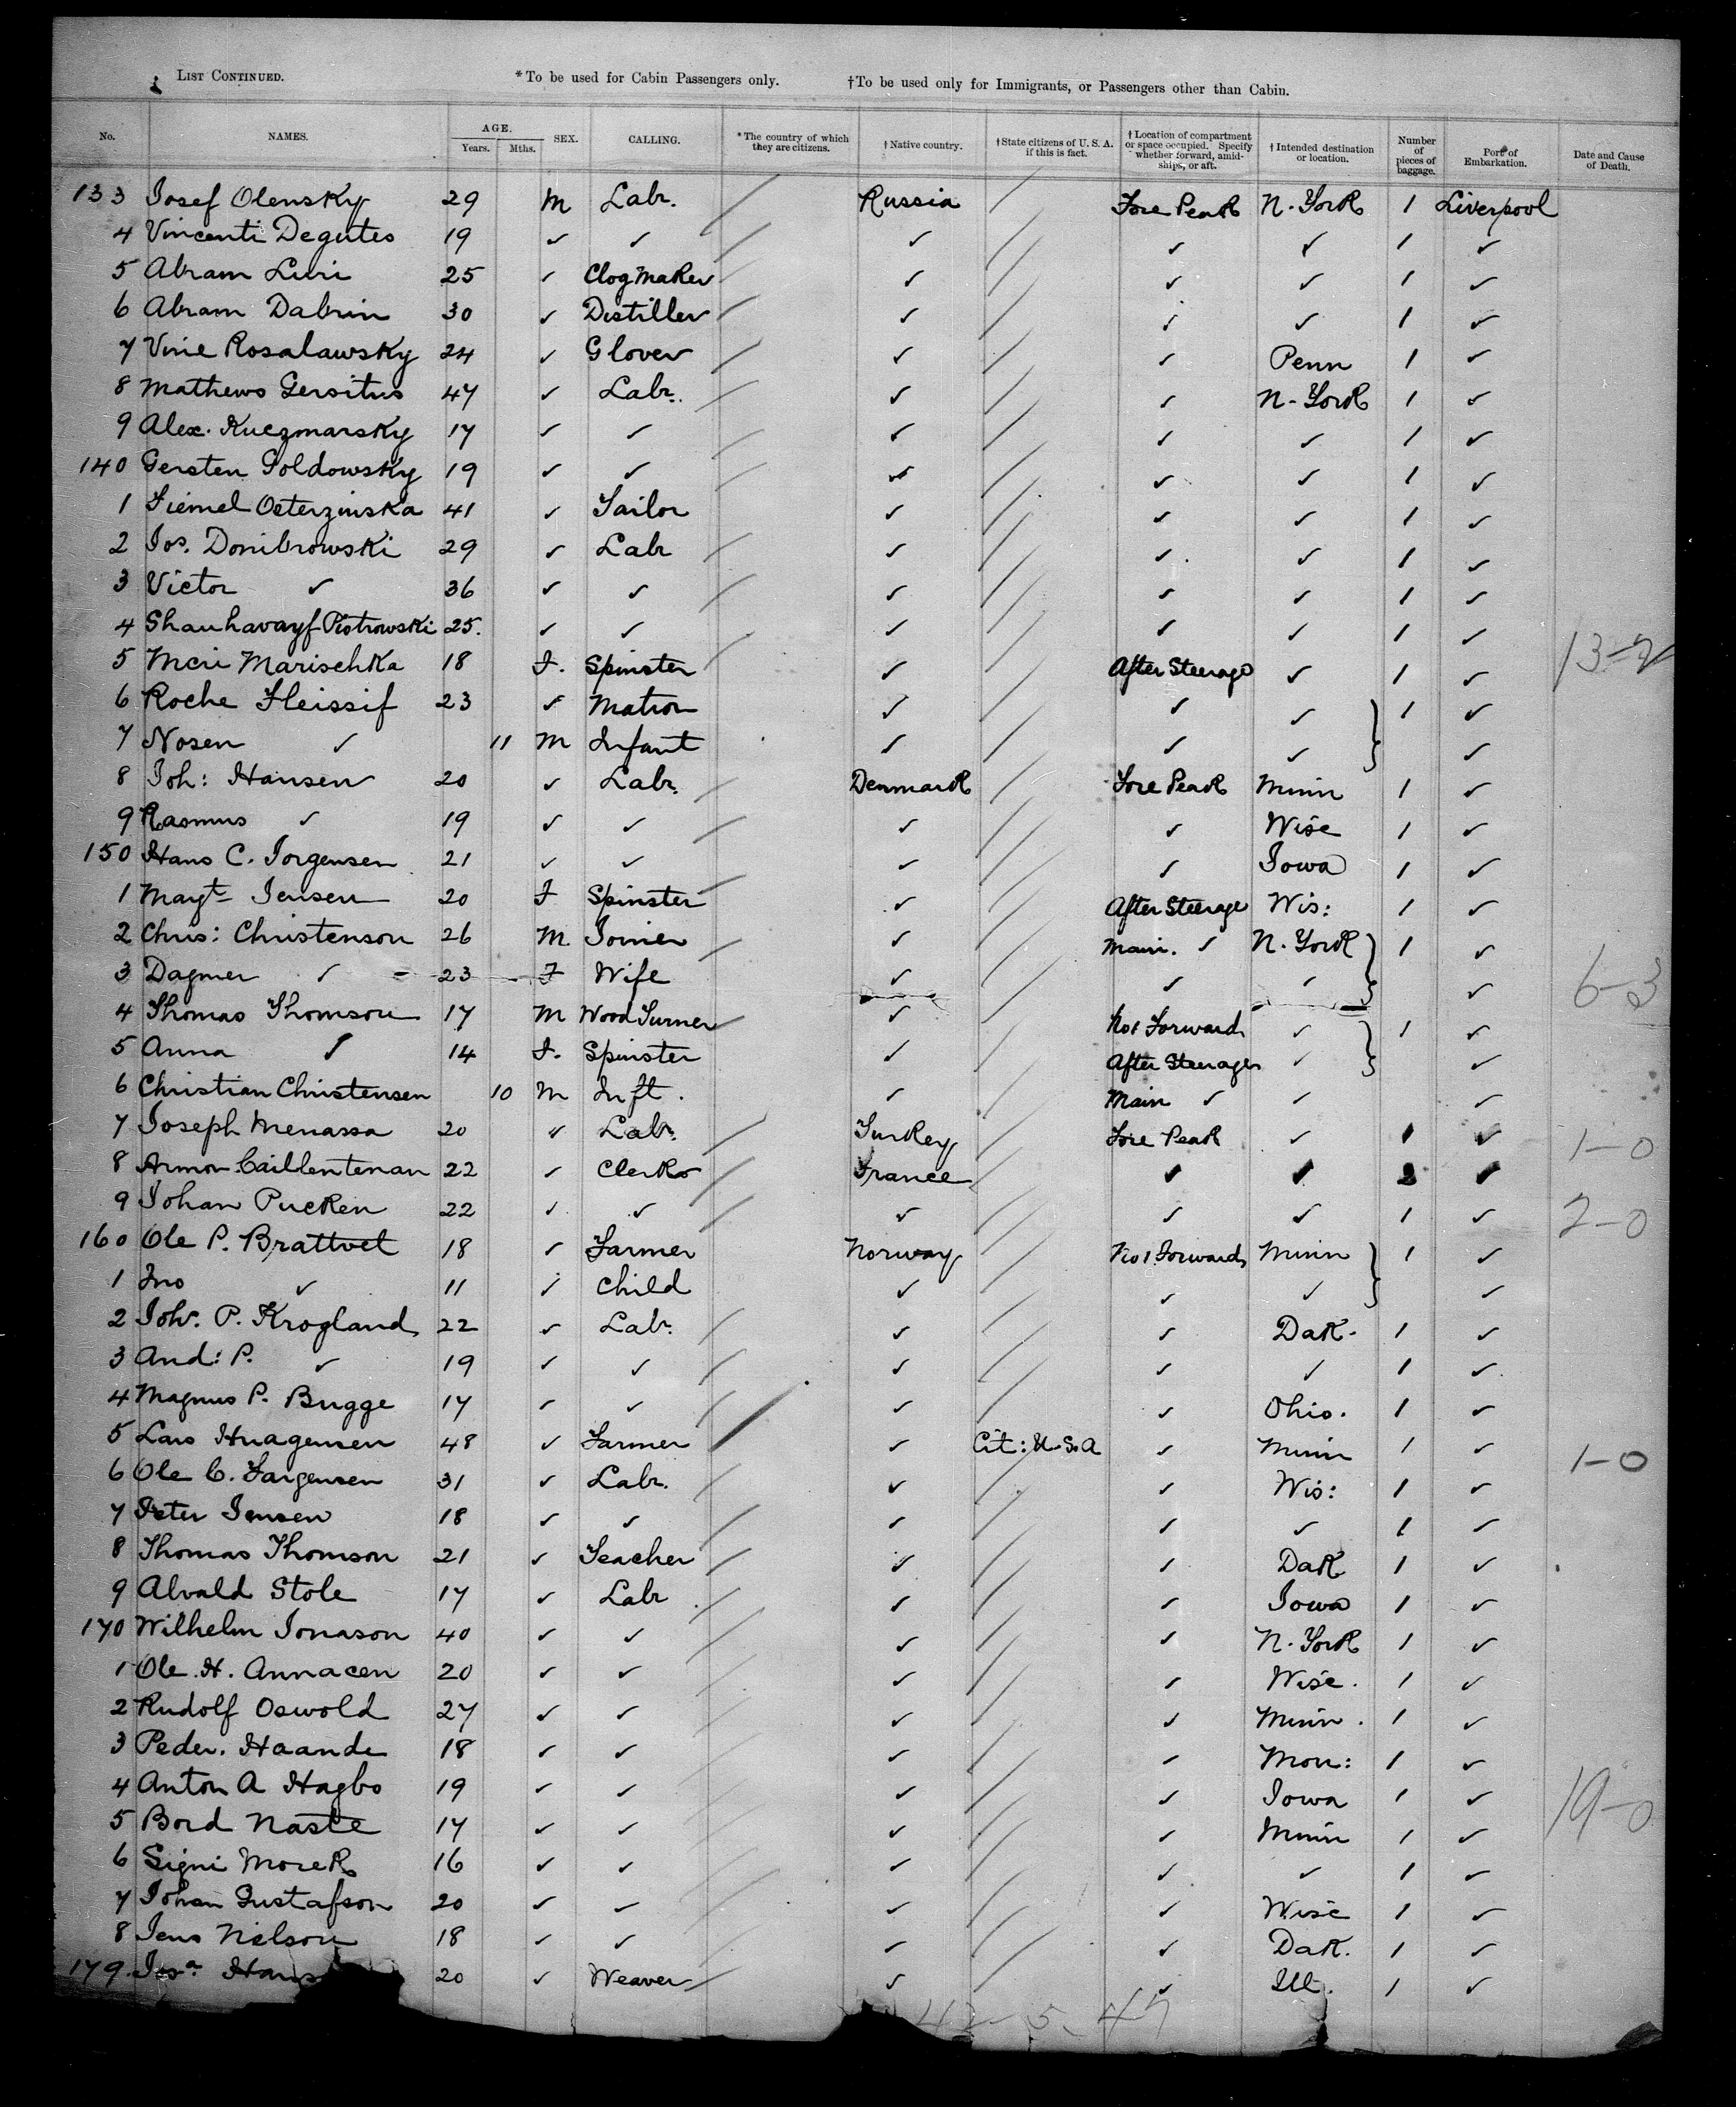 LIST CONTINUED. *To be used for Cabin Passengers only. †To be used only for Immigrants, or Passengers other than Cabin.
No. NAMES. AGE. Years. Mths. SEX. CALLING. *The country of which they are citizens. †Native country. †State citizens of U. S. A. if this is fact. †Location of compartment or space occupied. Specify whether forward, amidships, or aft. †Intended destination or location. Number of pieces of baggage. Port of Embarkation. Date and Cause of Death.
133 Josef Olensky 29 M Labr. / Russia / Fore Peak N. York 1 Liverpool
4 Vincenti Degutes 19 ✓ ✓ / ✓ / ✓ ✓ 1 ✓
5 Abram Livi 25 ✓ Clogmaker / ✓ / ✓ ✓ 1 ✓
6 Abram Dabrin 30 ✓ Distiller / ✓ / ✓ ✓ 1 ✓
7 Vine Rosalawsky 24 ✓ Glover / ✓ / ✓ Penn 1 ✓
8 Mathews Gersitus 47 ✓ Labr. / ✓ / ✓ N-York 1 ✓
9 Alex. Kuczmarsky 17 ✓ ✓ / ✓ / ✓ ✓ 1 ✓
140 Gersten Goldowsky 19 ✓ ✓ / ✓ / ✓ ✓ 1 ✓
1 Fiemel Osterzinska 41 ✓ Tailor ✓ / ✓ ✓ 1 ✓
2 Jos. Donibrowski 29 ✓ Labr / ✓ / ✓ ✓ 1 ✓
3 Victor ✓ 36 ✓ ✓ / ✓ / ✓ ✓ 1 ✓
4 Piotrowski 25. ✓ ✓ / ✓ / ✓ ✓ 1 ✓
5 Meri Marischka 18 F. Spinster / ✓ / After Steerage ✓ 1 ✓ 13-2
6 Roche Fleissif 23 ✓ Matron ✓ / ✓ ✓ } 1 ✓
7 Nosen ✓ 11 M Infant ✓ / ✓ ✓ } ✓
8 Joh: Hansen 20 ✓ Labr. / Denmark / Fore Peak Minn 1 ✓
9 Rasmus ✓ 19 ✓ ✓ / ✓ / ✓ Wisc 1 ✓
150 Hans C. Jorgensen 21 ✓ ✓ ✓ / ✓ Iowa 1 ✓
1 Magt Jensen 20 F Spinster / ✓ / After Steerage Wis: 1 ✓
2 Chris: Christenson 26 M. Joiner / ✓ / Main. ✓ N. York } 1 ✓
3 Dagmer ✓ 23 F Wife ✓ / ✓ ✓ } ✓ 6-3
4 Thomas Thomson 17 M Wood Turner / ✓ / No 1 Forward ✓ } 1 ✓
5 Anna ✓ 14 F. Spinster ✓ / After Steerage ✓ } ✓
6 Christian Christensen 10 M Inft. ✓ / Main ✓ ✓ ✓
7 Joseph Menassa 20 ✓ Labr. / Turkey / Fore Peak ✓ 1 ✓ 1-0
8 Armon Caillentenan 22 ✓ Clerk / France / ✓ ✓ 2 ✓
9 Johan Pucken 22 ✓ ✓ / ✓ / ✓ ✓ 1 ✓ 2-0
160 Ole P. Brattvet 18 ✓ Farmer Norway / No 1 Forward Minn } 1 ✓
1 Jno ✓ 11 ✓ Child ✓ / ✓ ✓ } ✓
2 Joh. P. Krogland 22 ✓ Labr. / ✓ / ✓ Dak. 1 ✓
3 And: P. ✓ 19 ✓ ✓ / ✓ / ✓ ✓ 1 ✓
4 Magnus P. Bugge 17 ✓ ✓ / ✓ / ✓ Ohio. 1 ✓
5 Lars Huagensen 48 ✓ Farmer / ✓ Cit: U.S.A ✓ Minn 1 ✓ 1-0
6 Ole C. Jargensen 31 ✓ Labr. ✓ / ✓ Wis: 1 ✓
7 Peter Jensen 18 ✓ ✓ / ✓ / ✓ ✓ 1 ✓
8 Thomas Thomson 21 ✓ Teacher / ✓ / ✓ Dak 1 ✓
9 Alvald Stole 17 ✓ Labr / ✓ / ✓ Iowa 1 ✓
170 Wilhelm Jonason 40 ✓ ✓ / ✓ / ✓ N. York 1 ✓
1 Ole. H. Annacen 20 ✓ ✓ / ✓ / ✓ Wisc. 1 ✓
2 Rudolf Oswold 27 ✓ ✓ / ✓ / ✓ Minn. 1 ✓
3 Peder. Haande 18 ✓ ✓ / ✓ / ✓ Mon: 1 ✓
4 Anton A Hagbo 19 ✓ ✓ / ✓ / ✓ Iowa 1 ✓ 19-0
5 Bord Naste 17 ✓ ✓ / ✓ / ✓ Minn 1 ✓
6 Signi Morek 16 ✓ ✓ / ✓ / ✓ ✓ 1 ✓
7 Johan Gustafson 20 ✓ ✓ / ✓ / ✓ Wisc 1 ✓
8 Jens Nielson 18 ✓ ✓ / ✓ / ✓ Dak. 1 ✓
179. Hans 20 ✓ Weaver / ✓ / ✓ Ill. 1 ✓
42-5-47